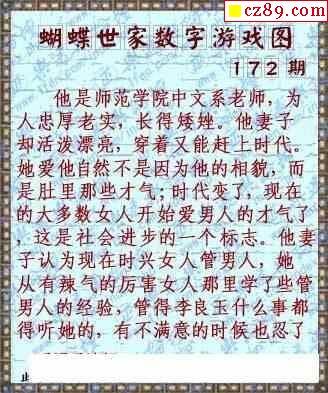 cz89.com
蝴蝶世家数字游戏图
172期
他是师范学院中文系老师，为
人忠厚老实，长得矮矬。他妻子
却活泼漂亮，穿着又能赶上时代。
她爱他自然不是因为他的相貌，而
是肚里那些才气；时代变了，现在
的大多数女人开始爱男人的才气了
，这是社会进步的一个标志。他妻
子认为现在时兴女人管男人，她
从有辣气的厉害女人那里学了些管
男人的经验，管得李良玉什么事都
得听她的，有不满意的时候也忍了